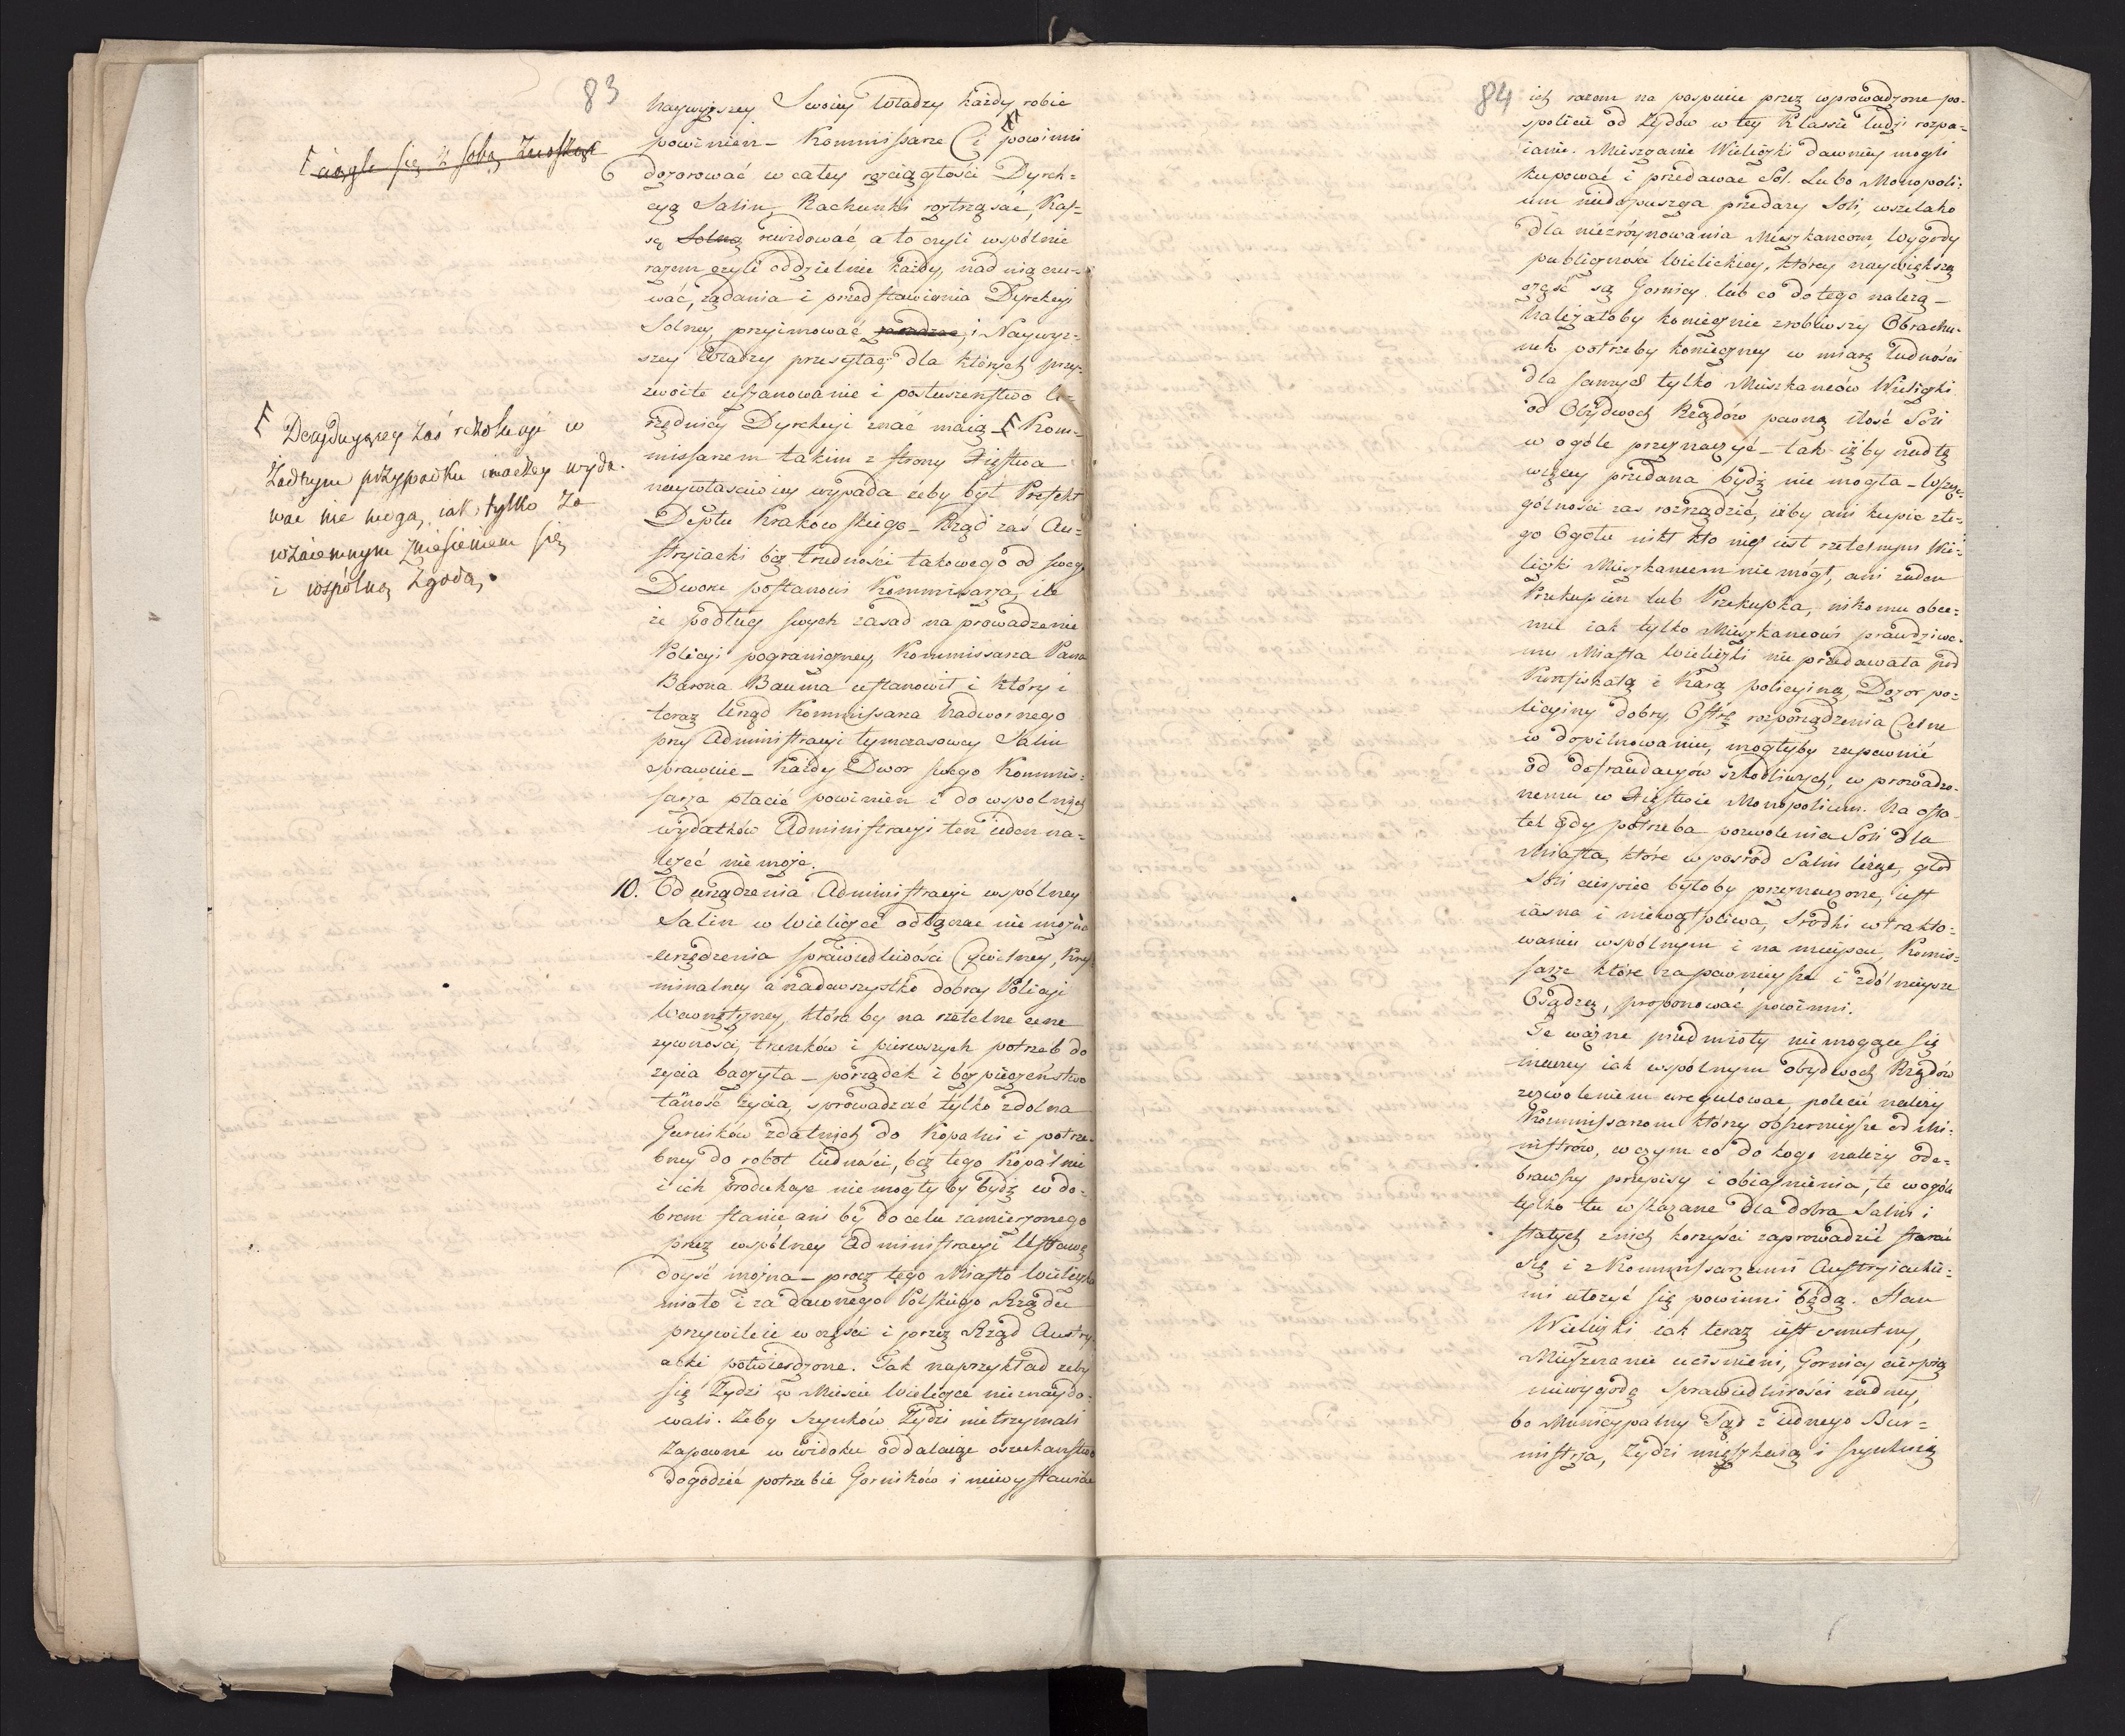 83
naywyższey Swoiey Władzy każdy robić
powinien – Kommissarze Ci powinni
Ƒ ciągle się z sobą znosząc
dozorować w całey rozciągłości Dyrek=
cyą Salin, Rachunki roztrząsać, Kas=
są Solną rewidować, a to czyli wspólnie
razem czyli oddzielnie każdy, nad nią czu=
wać, żądania i przedstawienia Dyrekcyi
Solney przyimować, i Naywyż=
szey Władzy przesyłać, dla których przy=
zwoite uszanowanie i posłuszeństwo U=
rzędnicy Dyrekcyi znać maią – Ƒ Kom=
missarzem takim z strony Xięstwa
naywłaściwiey wypada żeby był Prefekt
Deptu Krakowskiego – Rząd zaś Au=
stryiacki bez trudności takowego od swego
Dworu postanowi Kommissarza, ile
że podług swych zasad na prowadzenie
Policyi pograniczney, Kommissarza Pana
Barona Bauma ustanowił i który i
teraz Urząd Kommissarza Nadwornego
przy Administracyi tymczasowey Salin
sprawuie – Każdy Dwor swego Kommis=
sarza płacić powinien i do wspolnych
wydatków Administracyi ten ieden na=
leżeć nie może.
Ƒ Decydującey zaś rezolucyi w
żadnym przypadku inaczey wyda=
wać nie mogą, iak tylko za
wzaiemnym zniesieniem się
i wspólną zgodą.
10. Od urządzenia Administracyi wspólney
Salin w Wieliczce odłączać nie można
urządzenia sprawiedliwości Cywilney, Kry=
minalney a nadewszystko dobrey Policyi
Wewnętrzney, która by na rzetelne cene
żywności, trunków i pierwszych potrzeb do
życia baczyła – porządek i bezpieczeństwo
taniość życia, sprowadzać tylko zdolna
Gurników zdatnych do Kopalni i potrze=
bney do robot ludności, bez tego Kopalnie
i ich Produkcye nie mogłyby bydź w do=
brem stanie ani by do celu zamierzonego
przez wspólney Administracyi Ustawę
doyść można – procz tego Miasto Wieliczka
miało i za dawnego Polskiego Rządu
przywileie w części i przez Rząd Austry=
acki potwierdzone. Jak naprzykład żeby
się Żydzi w Mieście Wieliczce nieznaydo=
wali. Żeby Szynków Żydzi nie trzymali
Zapewne w widoku oddalaiąc oszukaństwo
dogodzić potrzebie Gorników i niewystawiać
84
ich razem na pospolite przez wprowadzone po=
spolicie od Żydów w tey Klassie ludzi rozpa=
ianie. Mieszczanie Wieliczki dawniey mogli
kupować i przedawać Sól. Lubo Monopoli=
um niedopuszcza przedaży Soli, wszelako
dla niezróynowania Mieszkańcom, Wygody
publiczności Wielickiey, którey naywiększą
część są Gornicy lub co do tego należą –
Należałoby koniecznie zrobiwszy Obrachu=
nek potrzeby konieczney w miarę ludności
dla samych tylko Mieszkańców Wieliczki
od Obydwoch Rządów pewną ilość Soli
w ogóle przeznaczyć – tak iżby nad tę
więcey przedana bydź nie mogła – W szcze=
gólności zaś rozrządzić, iżby ani kupić z te=
go Ogółu nikt kto nie iest rzetelnym Wie=
liczki Mieszkańcem nie mógł, ani żaden
Przekupień lub Przekupka, nikomu obce=
mu iak tylko Mieszkańcowi prawdziwe=
mu Miasta Wieliczki nie przedawała pod
Konfiskatą i Karą policyiną, Dozor po=
licyiny dobry, Ostrą rozporządzenia Celne
w dopilnowaniu, mogłyby zapewnić
od defraudacyów szkodliwych, w prowadzo=
nemu w Xięstwie Monopolium. Na osta=
tek gdy potrzeba pozwolenia Soli dla
Miasta, które w pośród Salin leżąc, głód
Soli cierpieć byłoby przeznaczone, iest
iasna i niewątpliwa, środki w trakto=
waniu wspólnym i na mieyscu, Komis=
sarze które zapewnieysze i zdólnieysze
Osądzą, proponować powinni.
Te ważne przedmioty nie mogące się
inaczey iak wspólnym obydwoch Rządów
zezwoleniem uregulować polecić należy
Kommissarzom którzy obszernieysze od Mi=
nistrów, w czym co do kogo należy ode=
brawszy przepisy i obiaśnienia, te w ogóle
tylko tu wskazane dla dobra Salin i
stałych z nich korzyści zaprowadzić starać
się i z Kommissarzami Austryiackie=
mi ułożyć się powinni będą. Stan
Wieliczki iak teraz iest smutny,
Mieszczanie uciśnieni, Gornicy cierpią
niewygodę Sprawiedliwości żadney,
bo Municypalny Sąd z iednego Bur=
mistrza, Żydzi mieszkaią i szynkuią